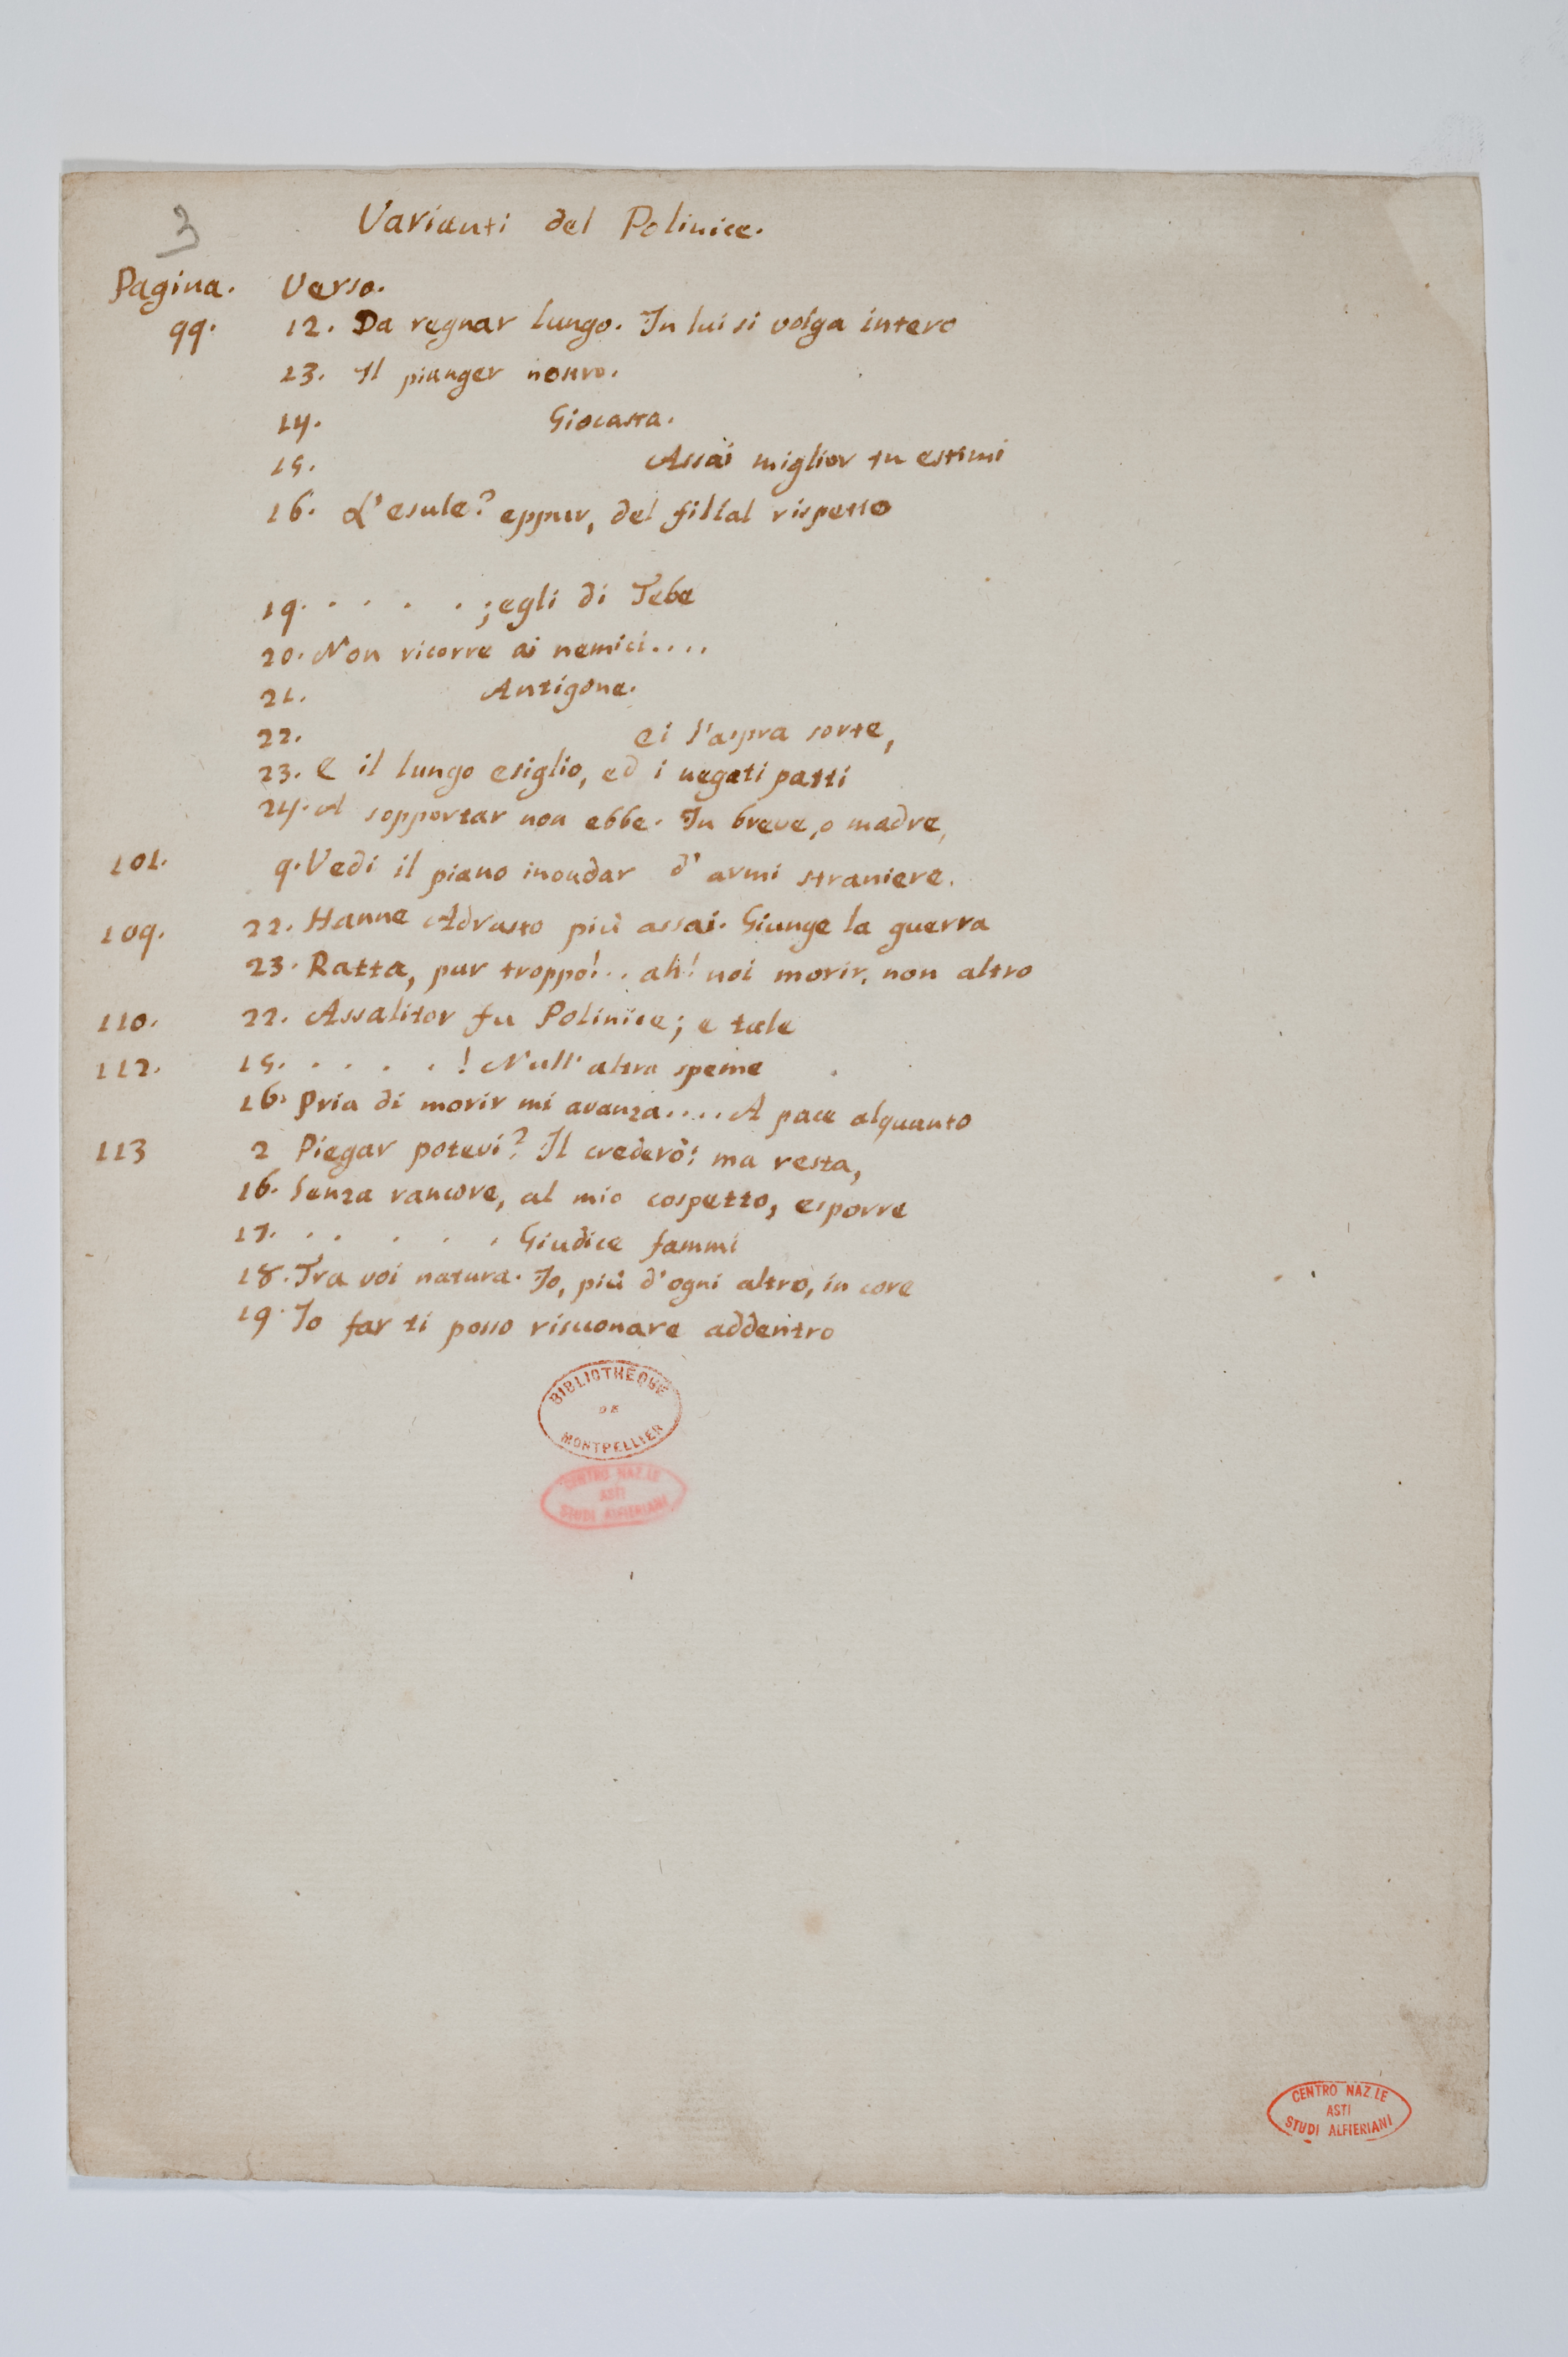 3
Varianti del Polinice.
Pagina. Verso.
99. 12. Da regnar lungo. In lui si volga intero
13. Il pianger nostro.
14. Giocasta.
15. Assai miglior tu estimi
16. L'esule? eppur, del filial rispetto
19. . . . . ; egli di Tebe
20. Non ricorre ai nemici....
21. Antigone.
22. ei l'aspra sorte,
23. E il lungo esiglio, ed i negati patti
24. A sopportar non ebbe. In breve, o madre,
101. 9. Vedi il piano inondar d'armi straniere.
109. 22. Hanne Adrasto più assai. Giunge la guerra
23. Ratta, pur troppo!.. ah! noi morir, non altro
110. 22. Assalitor fu Polinice; e tale
112. 15. . . . . ! Null'altra speme
16. Pria di morir mi avanza.... A pace alquanto
113 2 Piegar potevi? Il crederò: ma resta,
16. Senza rancore, al mio cospetto, esporre
17. . . . . . Giudice fammi
18. Tra voi natura. Io, più d'ogni altro, in core
19. Io far ti posso risuonare addentro
BIBLIOTHÈQUE
DE
MONTPELLIER
CENTRO NAZ.LE
ASTI
STUDI ALFIERIANI
CENTRO NAZ.LE
ASTI
STUDI ALFIERIANI